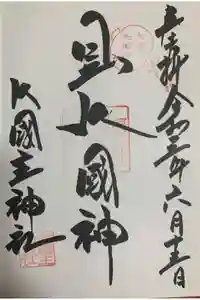 奉拝 令和三年六月十三日
大國神
大國主神社